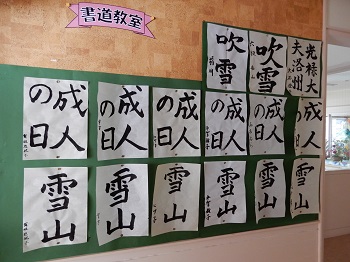 書道教室
吹雪
吹雪
光禄大
夫洛州
成人
の日
成人
の日
成人
の日
成人
の日
成人
の日
成人
の日
雪山
雪山
雪山
雪山
雪山
雪山